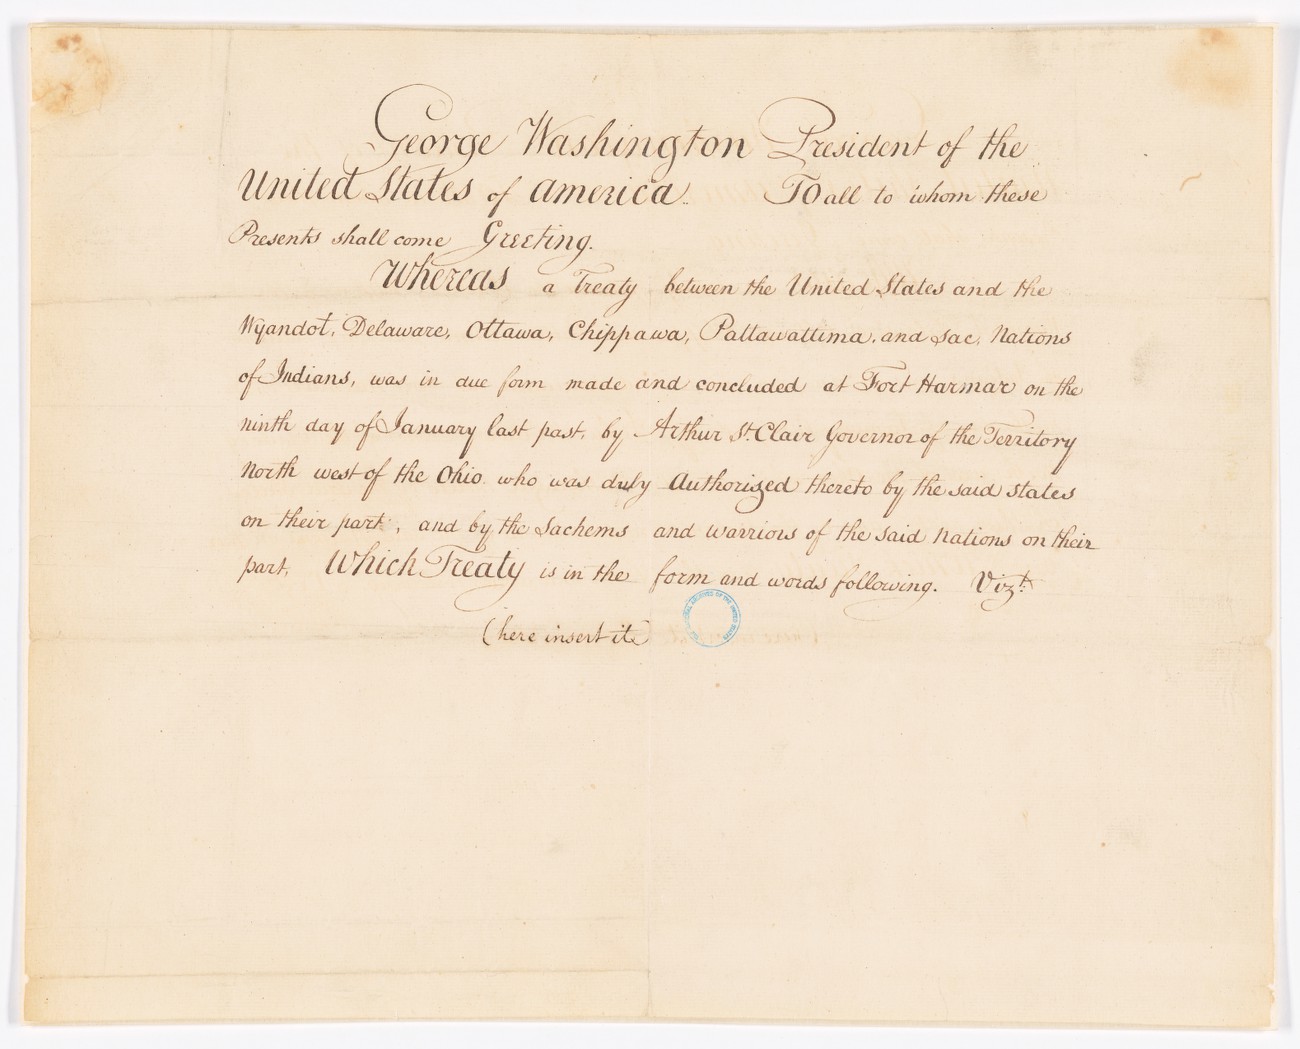 George Washington President of the
United States of America. To all to whom these
Presents shall come Greeting.
Whereas a Treaty between the United States and the
Wyandot, Delaware, Ottawa, Chippawa, Pattawattima, and Sac, Nations
of Indians, was in due form made and concluded at Fort Harmar on the
ninth day of January last past, by Arthur St. Clair Governor of the Territory
North west of the Ohio who was duly Authorised thereto by the said states
on their part, and by the Sachems and warriors of the said Nations on their
part, Which Treaty is in the form and words following. Vizt.
(here insert it)
ARCHIVES OF THE UNITED STATES